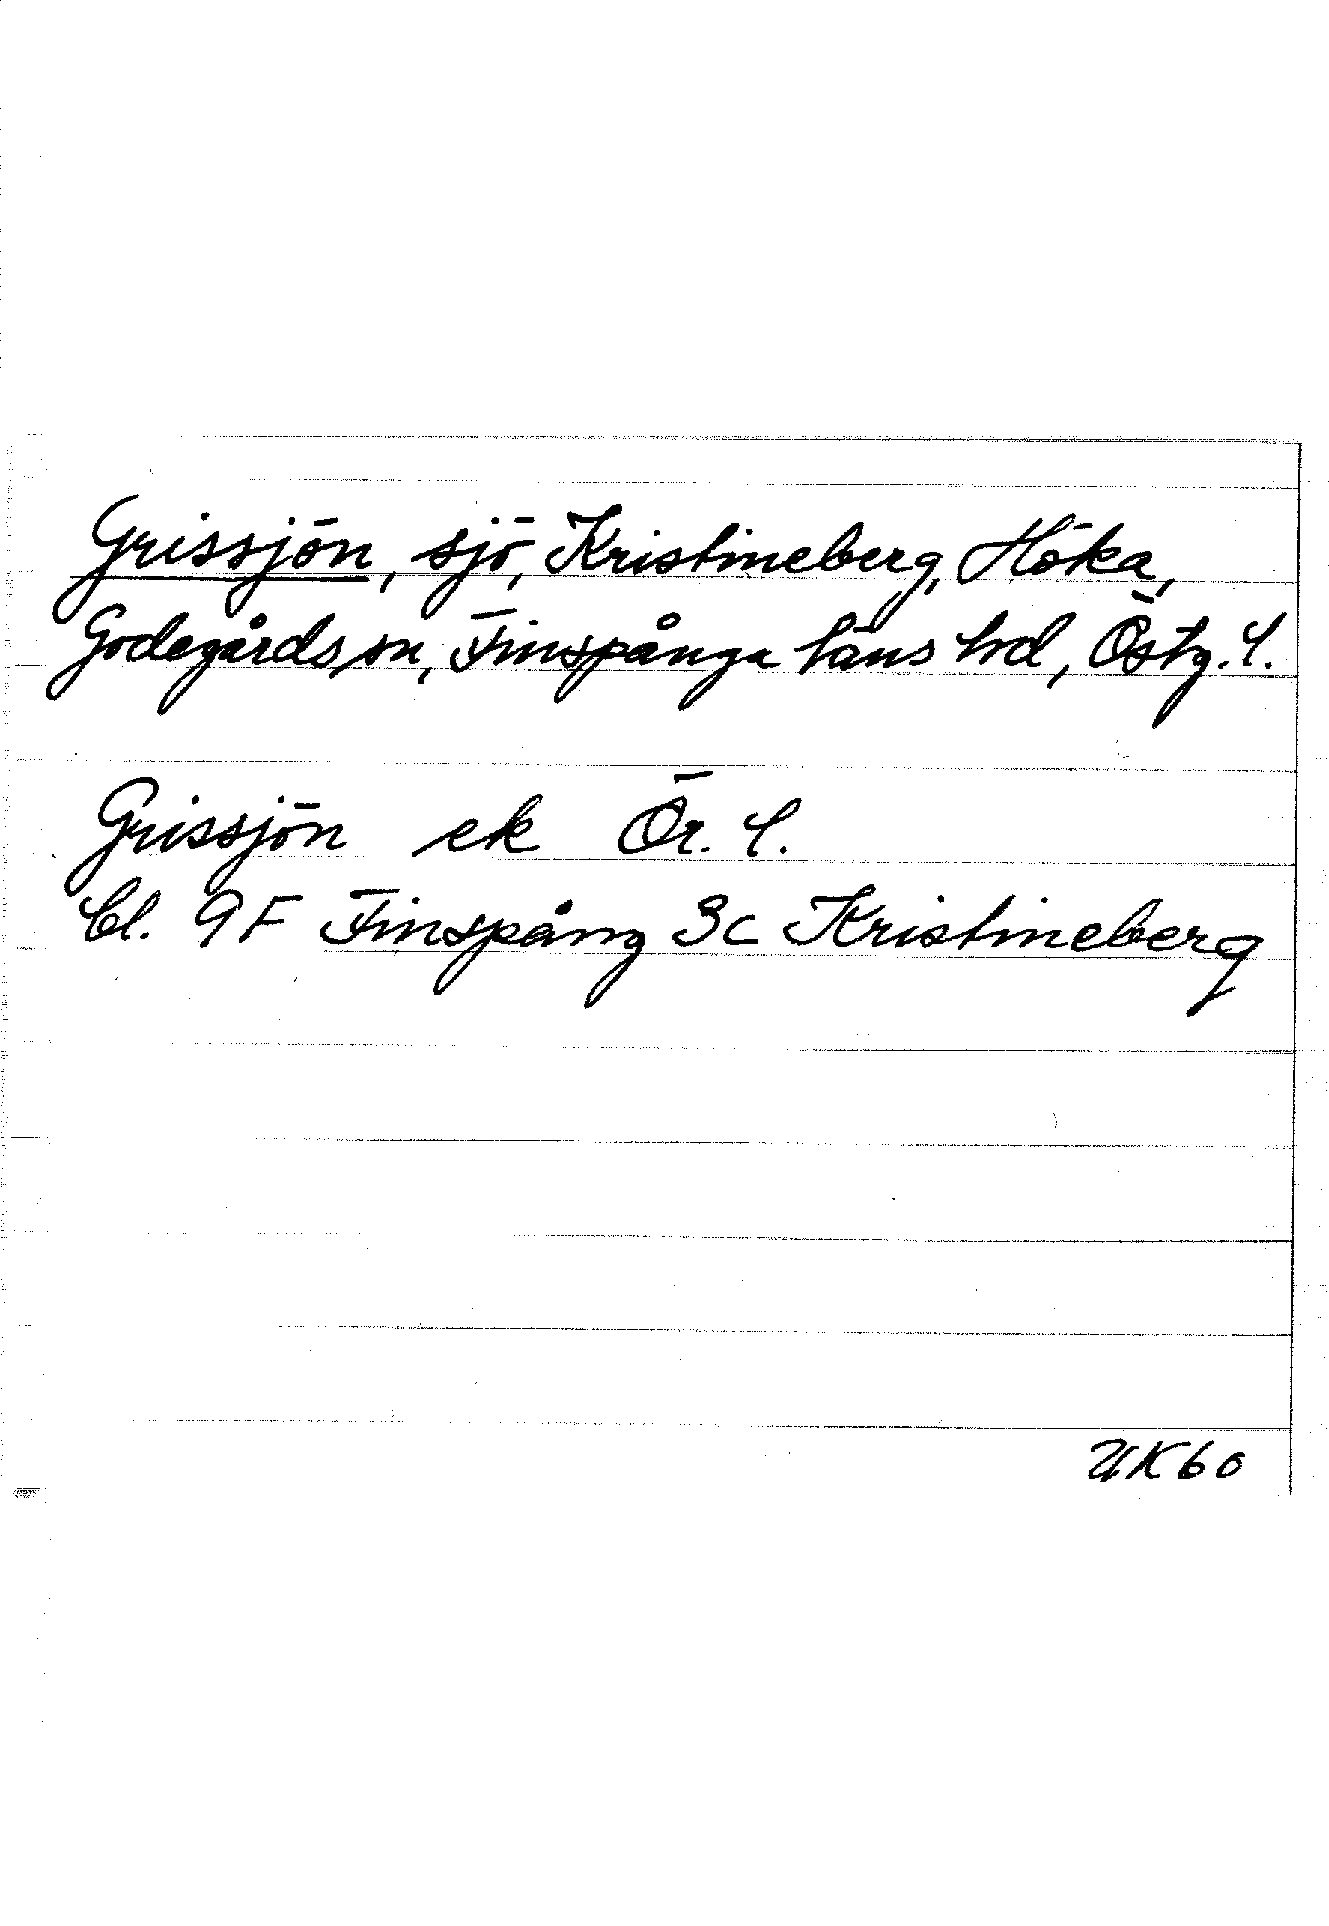 Grissjön, sjö, Kristineberg, Höka,
Godegårds sn, Finspånga läns hd, Östg. l.
Grissjön ek Ör. l.
bl. 9F Finspång 3c Kristineberg
UK60